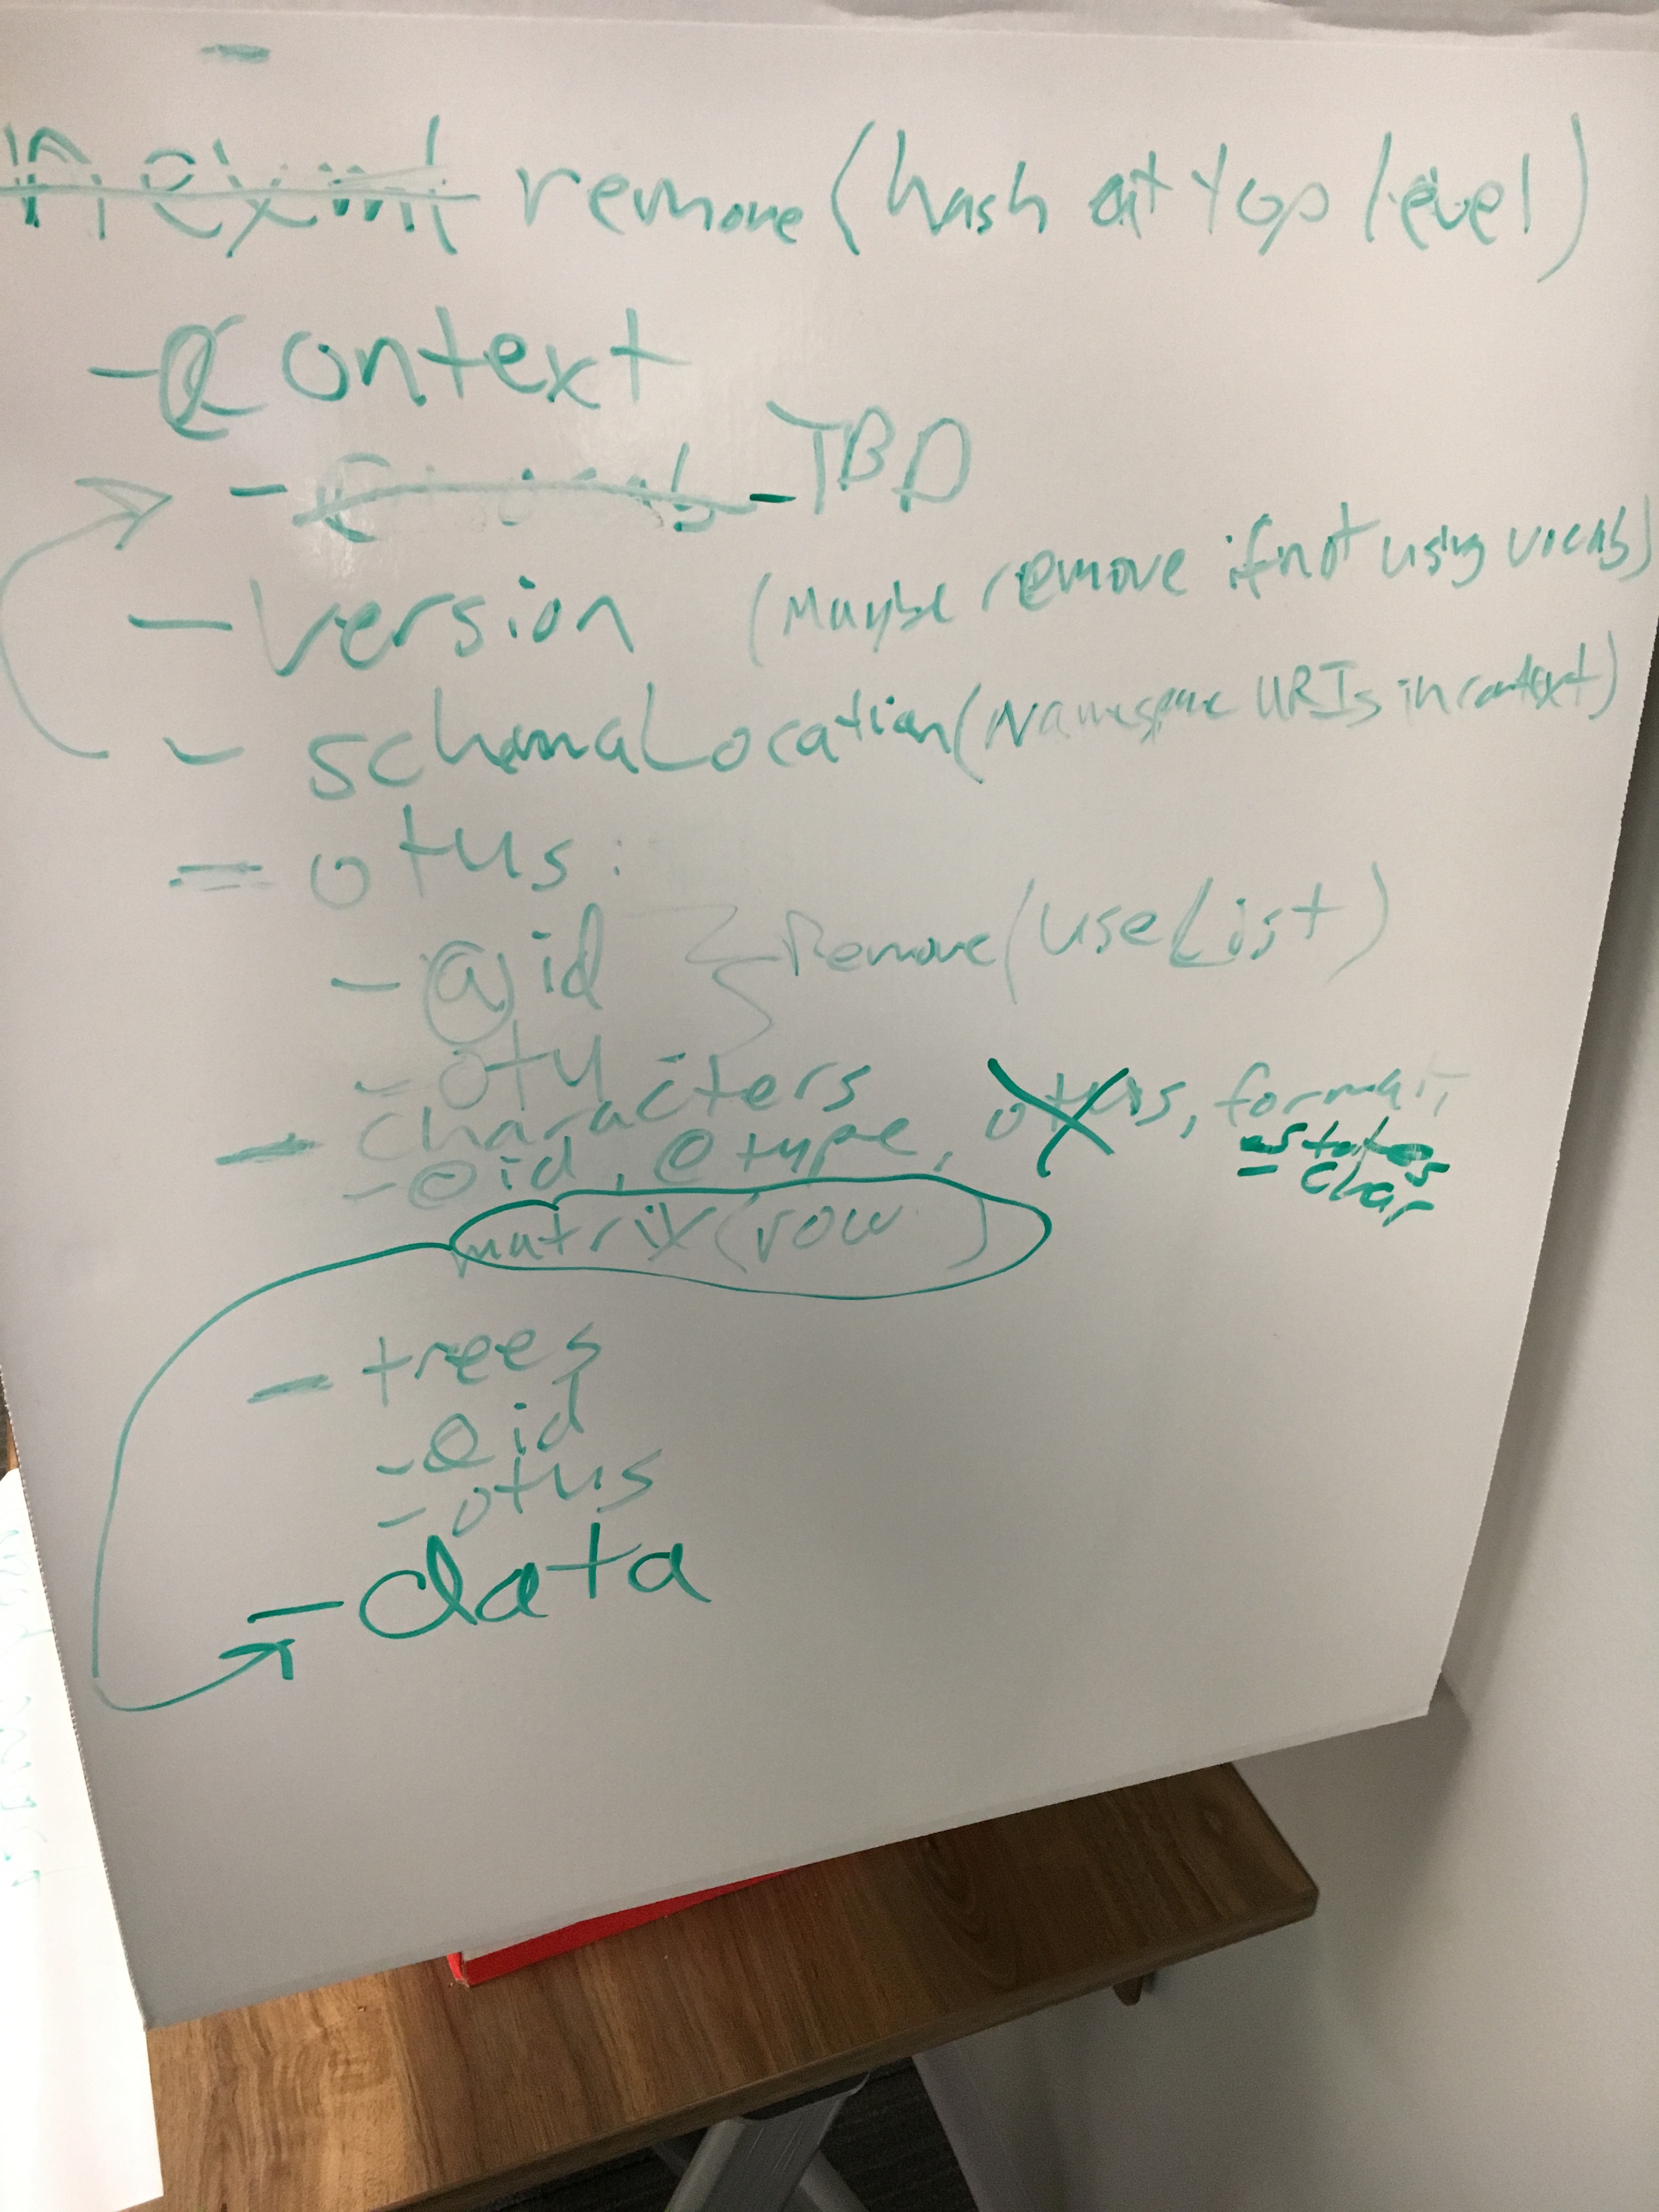 nexml remove (hash at top level)
- @context
- @vocab - TBD
- version (Maybe remove if not using vocab)
- schemaLocation (Namespace URIs in context)
- otus:
- @id Remove (use List)
- otu
- characters
- @id, @type, otus, format,
- states
- char
matrix (row )
- trees
- @id
- otus
- data